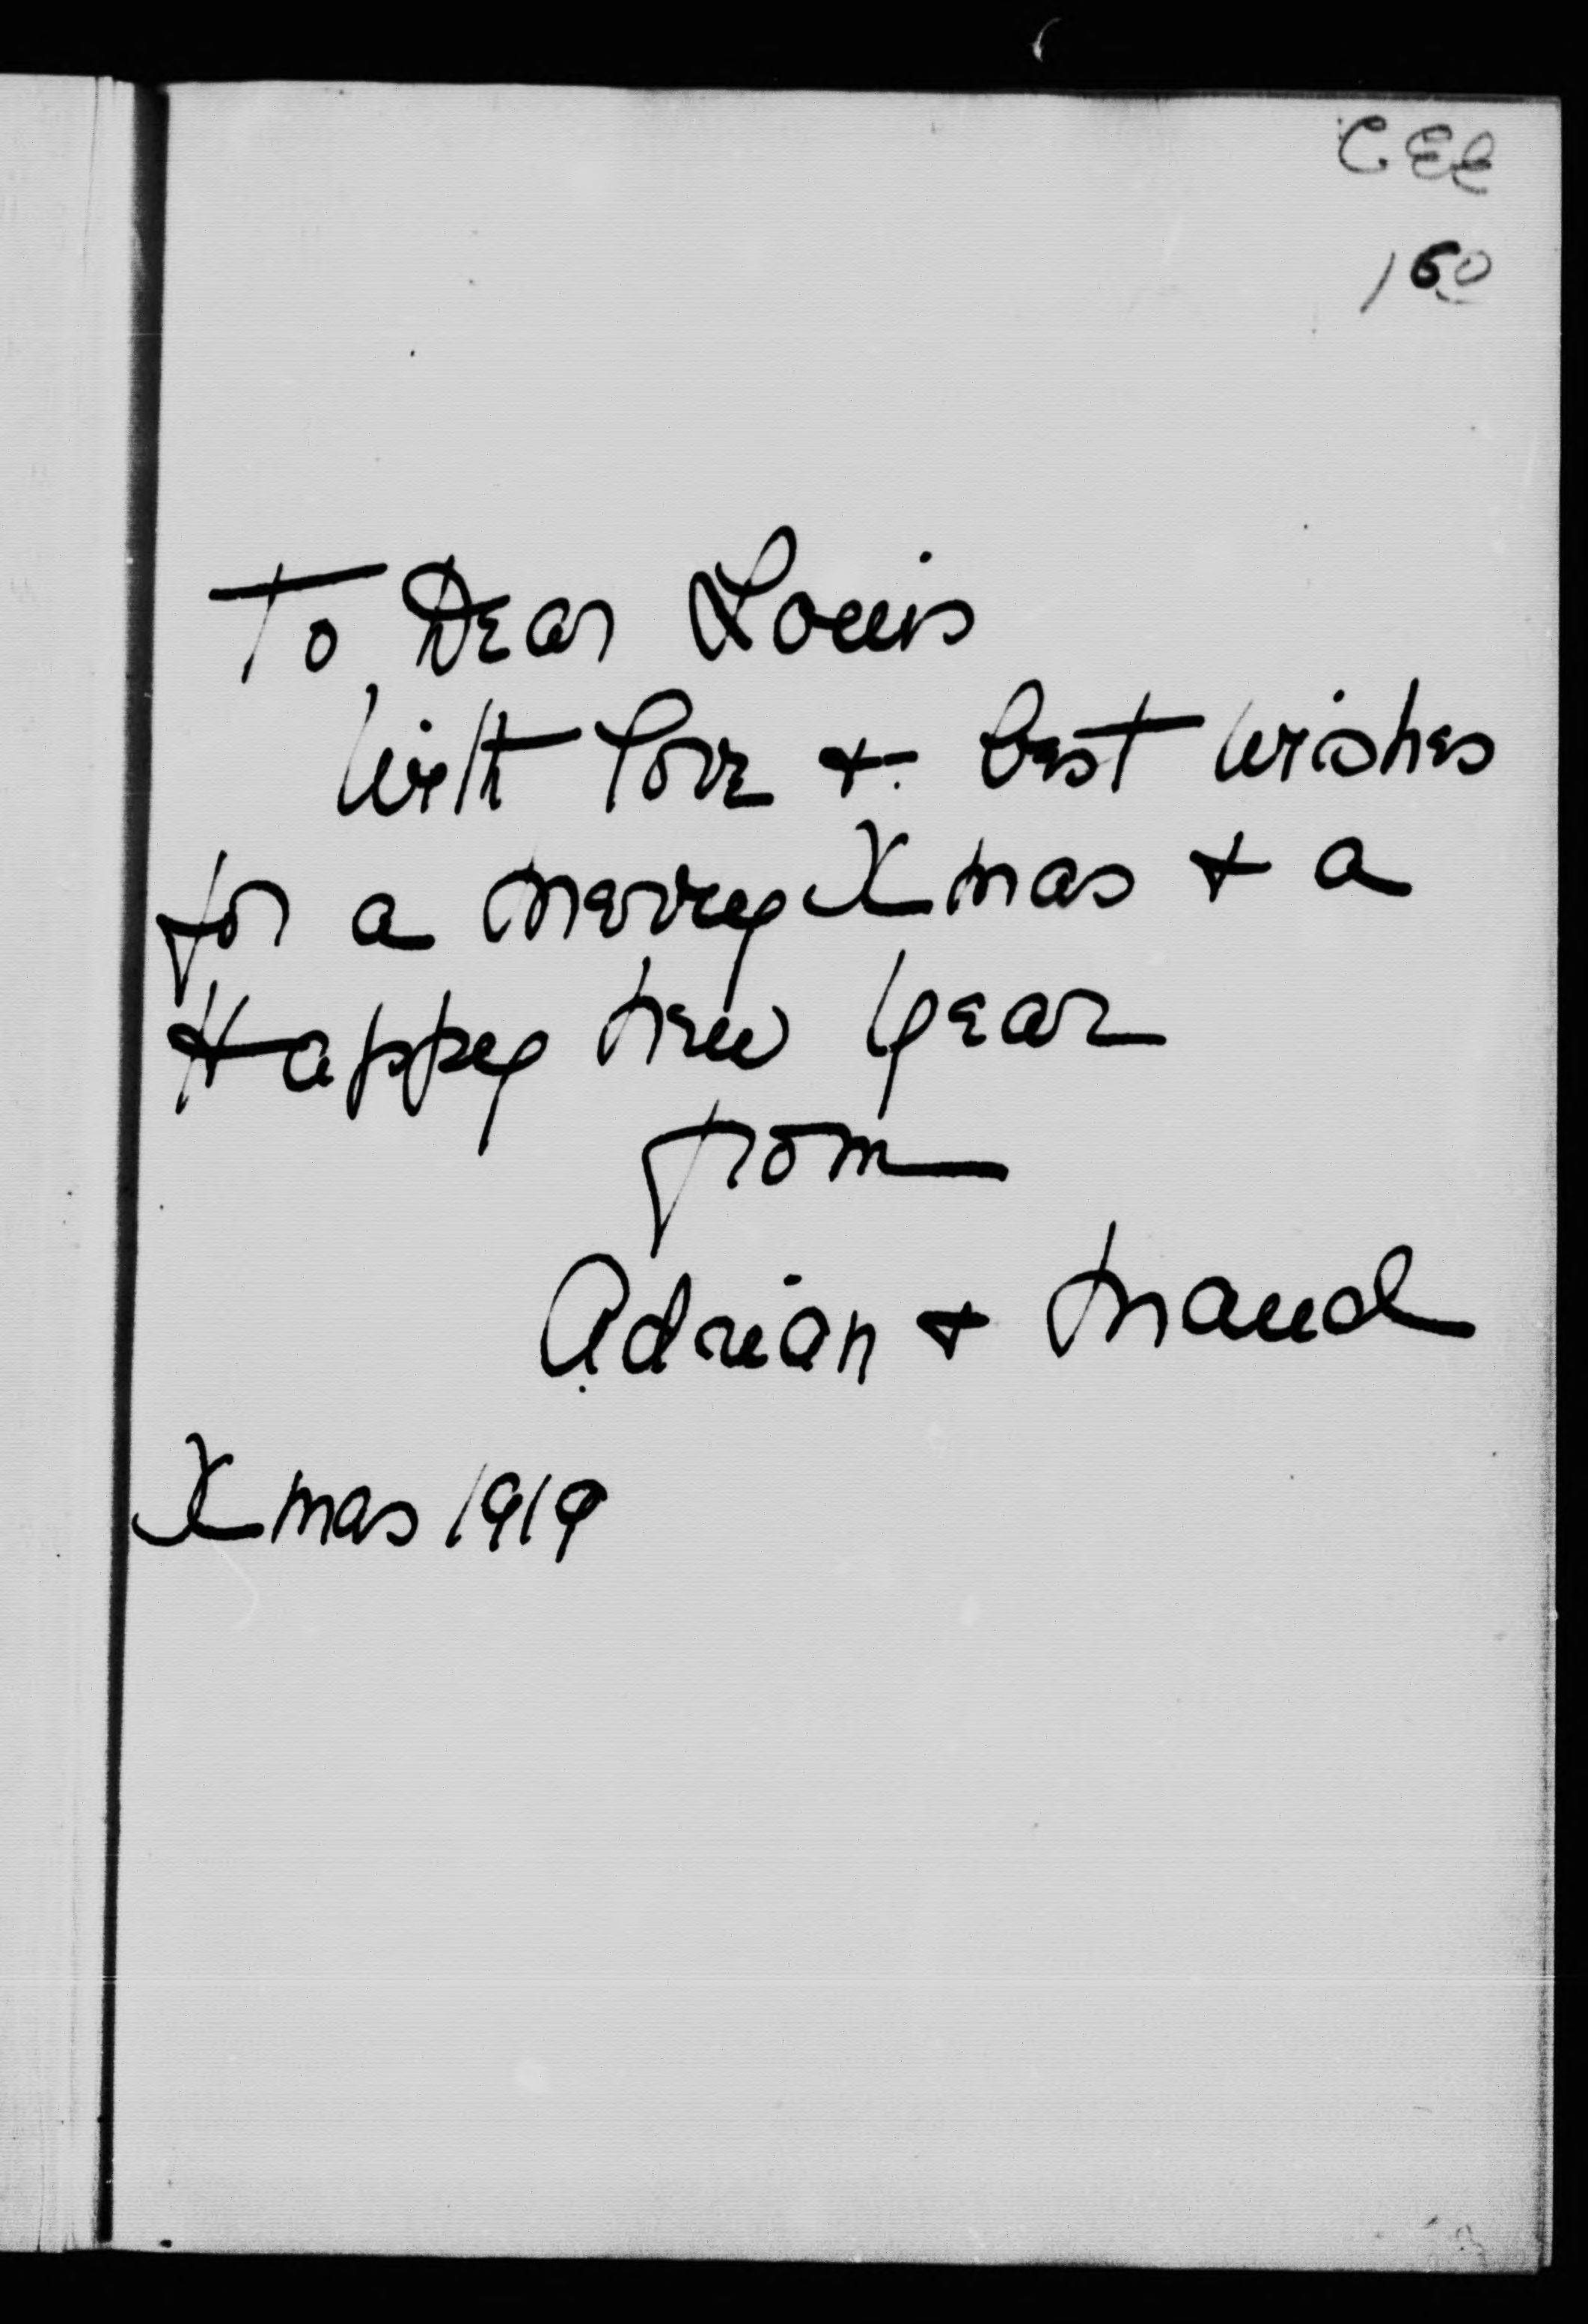 CEE
150
To Dear Louis
With love & best wishes
for a merry Xmas & a
Happy new year
from
Adrian & Maud
Xmas 1919